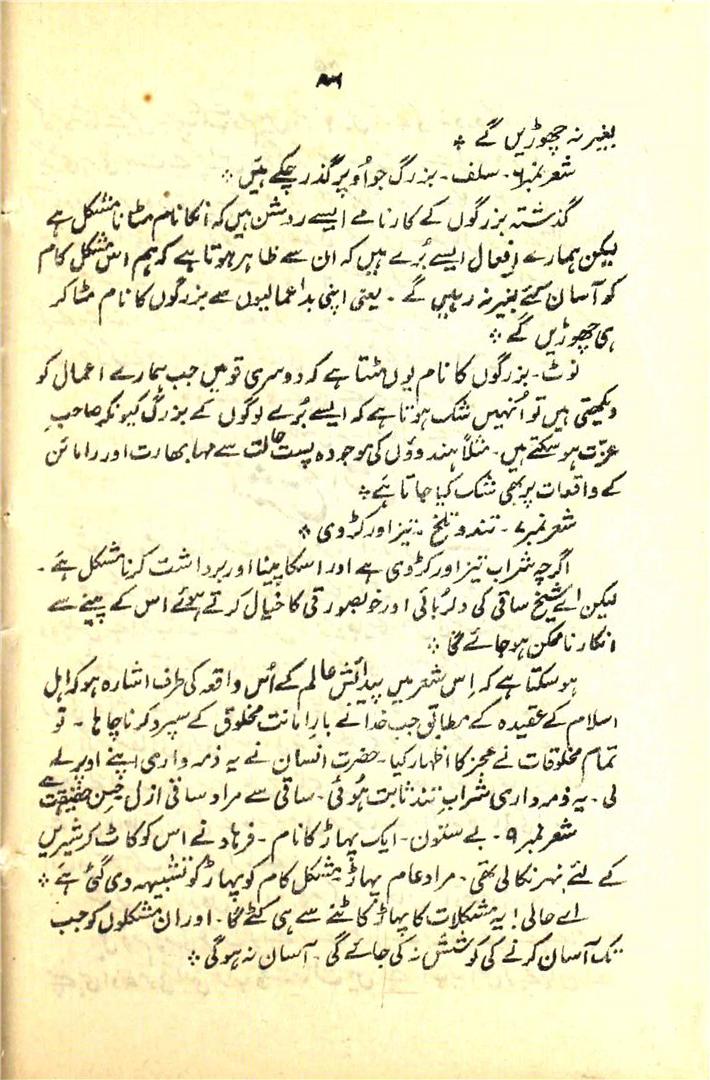 ۸۶
بغیر نہ چھوڑیں گے *
شعر نمبر ۶۔ سلف۔ بزرگ جو اُوپر گذر چکے ہیَں *
گذشتہ بزرگوں کے کارنامے ایسے روشن ہیں کہ انکا نام مٹانا مشکل ہے
لیکن ہمارے افعال ایسے بُرے ہیں کہ ان سے ظاہر ہوتا ہے کہ ہم اس مشکل کام
کو آسان کئے بغیر نہ رہیں گے۔ یعنی اپنی بداعمالیوں سے بزرگوں کا نام مٹا کر
ہی چھوڑیں گے *
نوٹ۔ بزرگوں کا نام یوں مٹتا ہے کہ دوسری قومیں جب ہمارے اعمال کو
دیکھتی ہیں تو اُنہیں شک ہوتا ہے کہ ایسے بُرے لوگوں کے بزرگ کیونکر صاحبِ
عزت ہو سکتے ہیں۔ مثلاً ہندوؤں کی موجودہ پست حالت سے مہابھارت اور رامائن
کے واقعات پر بھی شک کیا جاتا ہَے *
شعر نمبر ۷۔ تند و تلخ۔ تیز اور کڑوی *
اگرچہ شراب تیز اور کڑوی ہے اور اسکا پینا اور برداشت کرنا مشکل ہَے۔
لیکن اَے شیخ ساقی کی دلرُبائی اور خوبصورتی کا خیال کرتے ہُوئے اس کے پینے سے
انکار ناممکن ہو جائے گا *
ہو سکتا ہے کہ اِس شعر میں پیدائش عالم کے اُس واقعہ کی طرف اشارہ ہو کہ اہل
اسلام کے عقیدہ کے مطابق جب خدا نے بارِ امانت مخلوق کے سپرد کرنا چاہا۔ تو
تمام مخلوقات نے عجز کا اظہار کیا۔ حضرت انسان نے یہ ذمہ داری اپنے اوپر لے
لی۔ یہ ذمہ داری شرابِ تند ثابت ہُوئی۔ ساقی سے مراد ساقی ازل حسن حقیقت ہے
شعر نمبر ۹۔ بے ستون۔ ایک پہاڑ کا نام۔ فرہاد نے اس کو کاٹ کر شیریں
کے لئے نہر نکالی تھی۔ مراد عام پہاڑ مشکل کام کو پہاڑ کو تشبیہہ دی گئی ہَے *
اے حالی! یہ مشکلات کا پہاڑ کاٹنے سے ہی کٹے گا۔ اور ان مشکلوں کو جب
تک آسان کرنے کی کوشش نہ کی جائے گی۔ آسان نہ ہوگی *